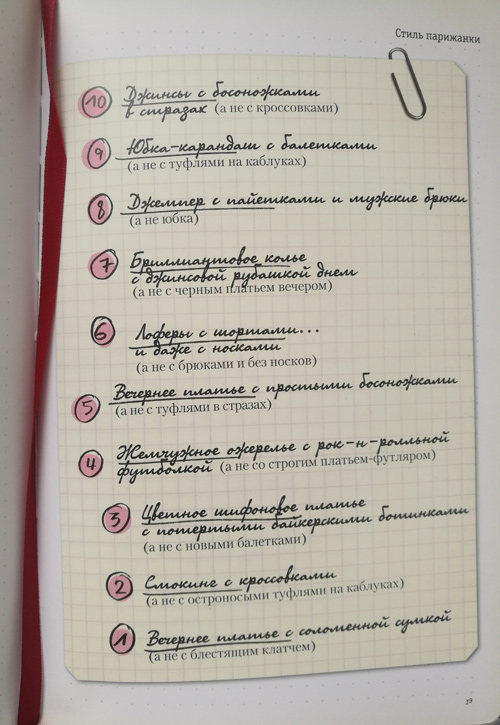 Стиль парижанки
10 Джинсы с босоножками
в стразах (а не с кроссовками)
9 Юбка-карандаш с балетками
(а не с туфлями на каблуках)
8 Джемпер с пайетками и мужские брюки
(а не юбка)
7 Бриллиантовое колье
с джинсовой рубашкой днем
(а не с черным платьем вечером)
6 Лоферы с шортами...
и даже с носками
(а не с брюками и без носков)
5 Вечернее платье с простыми босоножками
(а не с туфлями в стразах)
4 Жемчужное ожерелье с рок-н-ролльной
футболкой (а не со строгим платьем-футляром)
3 Цветное шифоновое платье
с потертыми байкерскими ботинками
(а не с новыми балетками)
2 Смокинг с кроссовками
(а не с остроносыми туфлями на каблуках)
1 Вечернее платье с соломенной сумкой
(а не с блестящим клатчем)